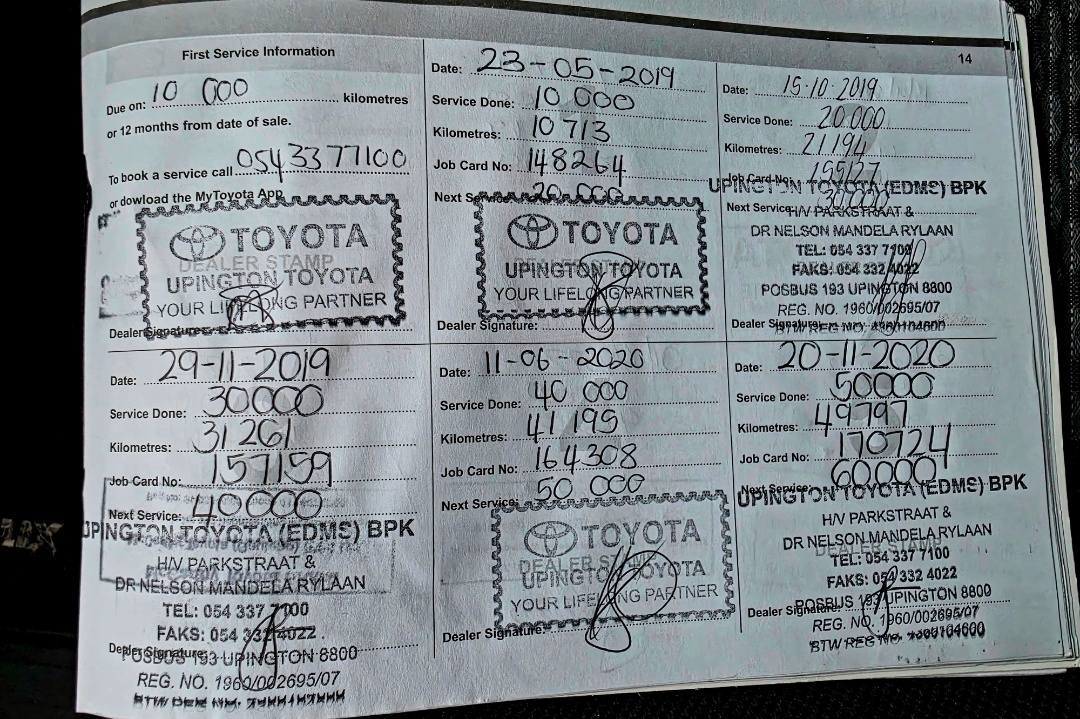 First Service Information
Due on: 10 000 kilometres
or 12 months from date of sale.
To book a service call 054 33 77100
or dowload the MyToyota App
TOYOTA
DEALER STAMP
UPINGTON TOYOTA
YOUR LIFELONG PARTNER
Dealer Signature:
Date: 23-05-2019
Service Done: 10 000
Kilometres: 10 713
Job Card No: 148264
Next Service: 20 000
TOYOTA
UPINGTON TOYOTA
YOUR LIFELONG PARTNER
Dealer Signature:
14
Date: 15.10.2019
Service Done: 20.000
Kilometres: 21194
Job Card No:
UPINGTON TOYOTA (EDMS) BPK
Next Service:
H/V PARKSTRAAT &
DR NELSON MANDELA RYLAAN
TEL: 054 337 7100
FAKS: 054 332 4022
POSBUS 193 UPINGTON 8800
REG. NO. 1960/002695/07
Dealer Signature:
Date: 29-11-2019
Service Done: 30000
Kilometres: 31 261
Job Card No: 157159
Next Service: 40000
UPINGTON TOYOTA (EDMS) BPK
H/V PARKSTRAAT &
DR NELSON MANDELA RYLAAN
TEL: 054 337 7100
FAKS: 054 332 4022
Dealer Signature:
POSBUS 193 UPINGTON 8800
REG. NO. 1960/002695/07
Date: 11-06-2020
Service Done: 40 000
Kilometres: 41 195
Job Card No: 164308
Next Service: 50 000
TOYOTA
DEALER STAMP
UPINGTON TOYOTA
YOUR LIFELONG PARTNER
Dealer Signature:
Date: 20-11-2020
Service Done: 50000
Kilometres: 49797
Job Card No: 170724
Next Service: 60000
UPINGTON TOYOTA (EDMS) BPK
H/V PARKSTRAAT &
DR NELSON MANDELA RYLAAN
TEL: 054 337 7100
FAKS: 054 332 4022
Dealer Signature:
POSBUS 193 UPINGTON 8800
REG. NO. 1960/002695/07
BTW REG NO.